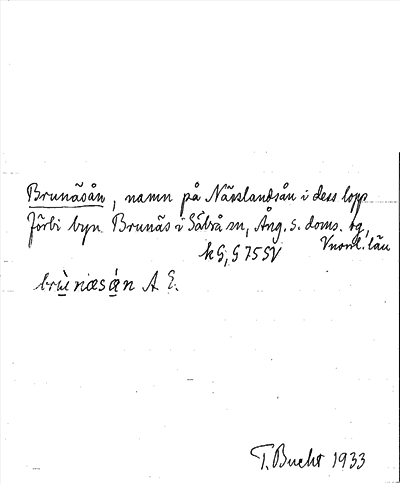 Brunäsån, namn på Näslandsån i dess lopp
förbi byn Brunäs i Säbrå sn, Ång. s. doms. og,
Vnorrl. län
kG, G 75 SV
A E.
T. Bucht 1933